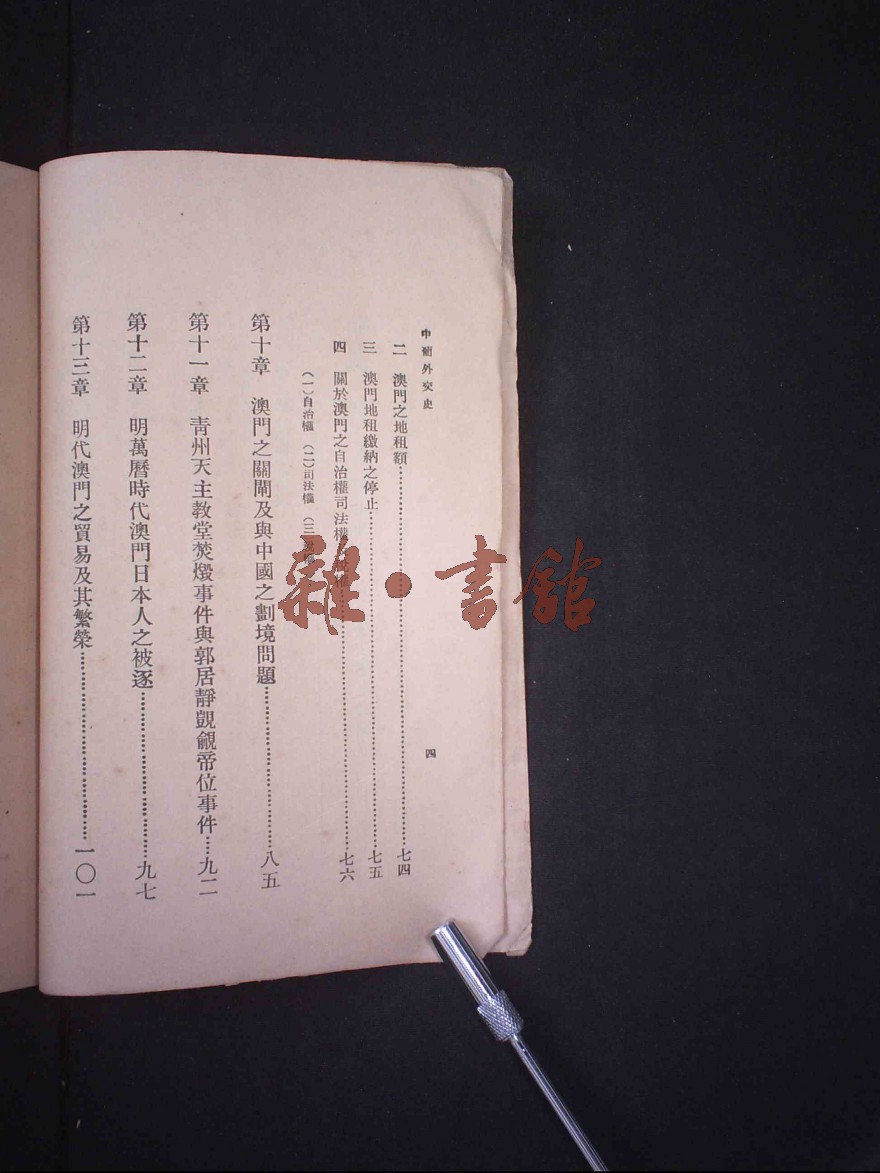 中葡外交史
四
二 澳門之地租額……七四
三 澳門地租繳納之停止……七五
四 關於澳門之自治權司法權……七六
(一)自治權 (二)司法權 (三)
第十章 澳門之關閘及與中國之劃境問題……八五
第十一章 青州天主教堂焚燬事件與郭居靜覬覦帝位事件……九二
第十二章 明萬曆時代澳門日本人之被逐……九七
第十三章 明代澳門之貿易及其繁榮……一〇一
雜·書館